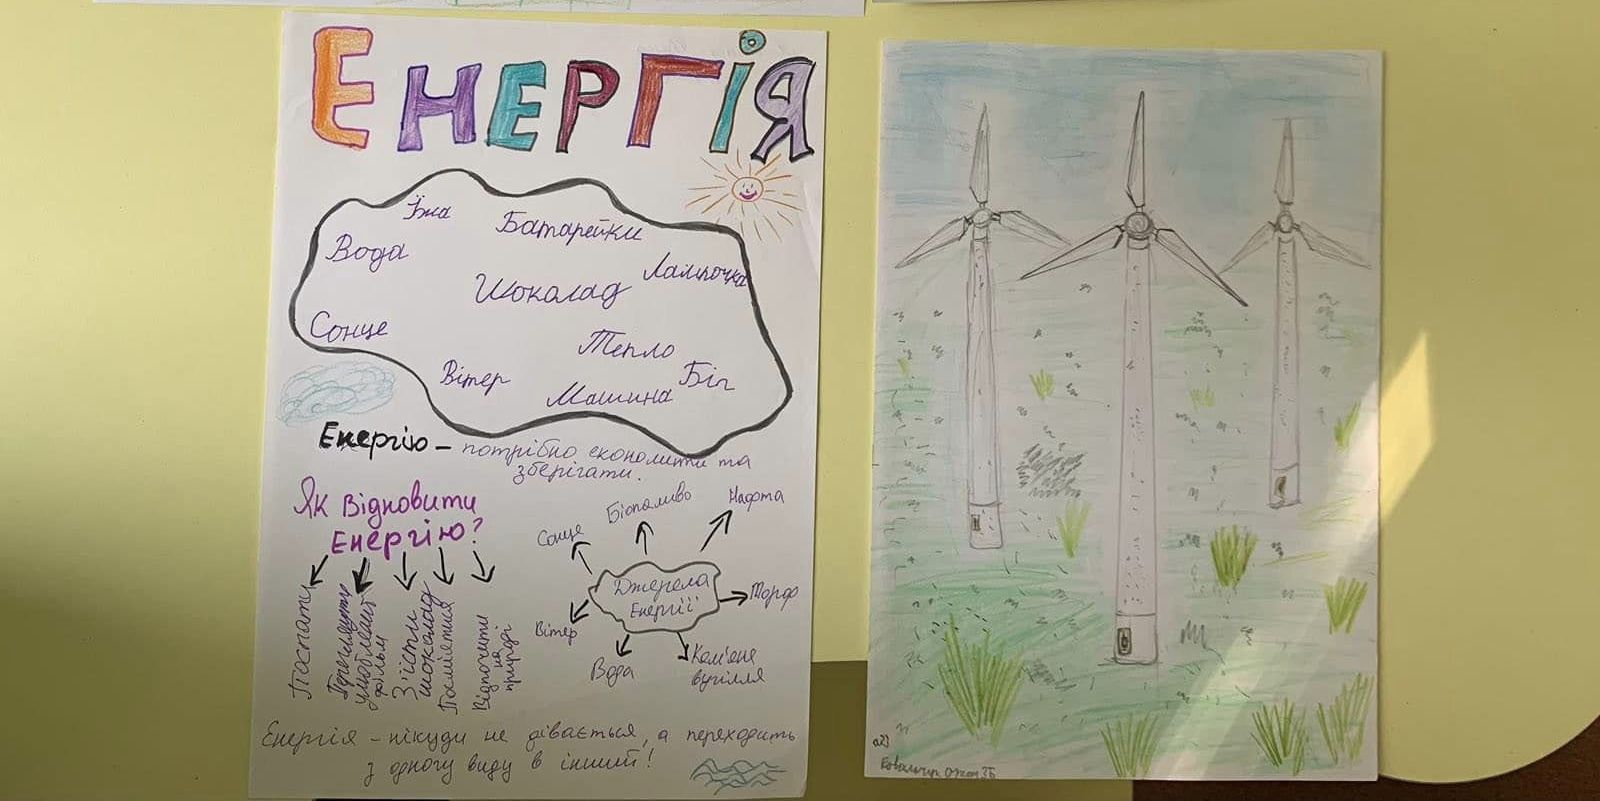 Енергія
Їжа
Батарейки
Вода
Лампочка
Шоколад
Сонце
Тепло
Вітер
Біг
Машина
Енергію – потрібно економити та
зберігати.
Як відновити
Енергію?
Поспати
Переглянути
улюблений
фільм
З'їсти
шоколад
Посміятися
Відпочити
на
природі
Джерела
Енергії
Сонце
Біопаливо
Нафта
Торф
Кам'яне
вугілля
Вода
Вітер
Енергія – нікуди не дівається, а переходить
з одного виду в інший!